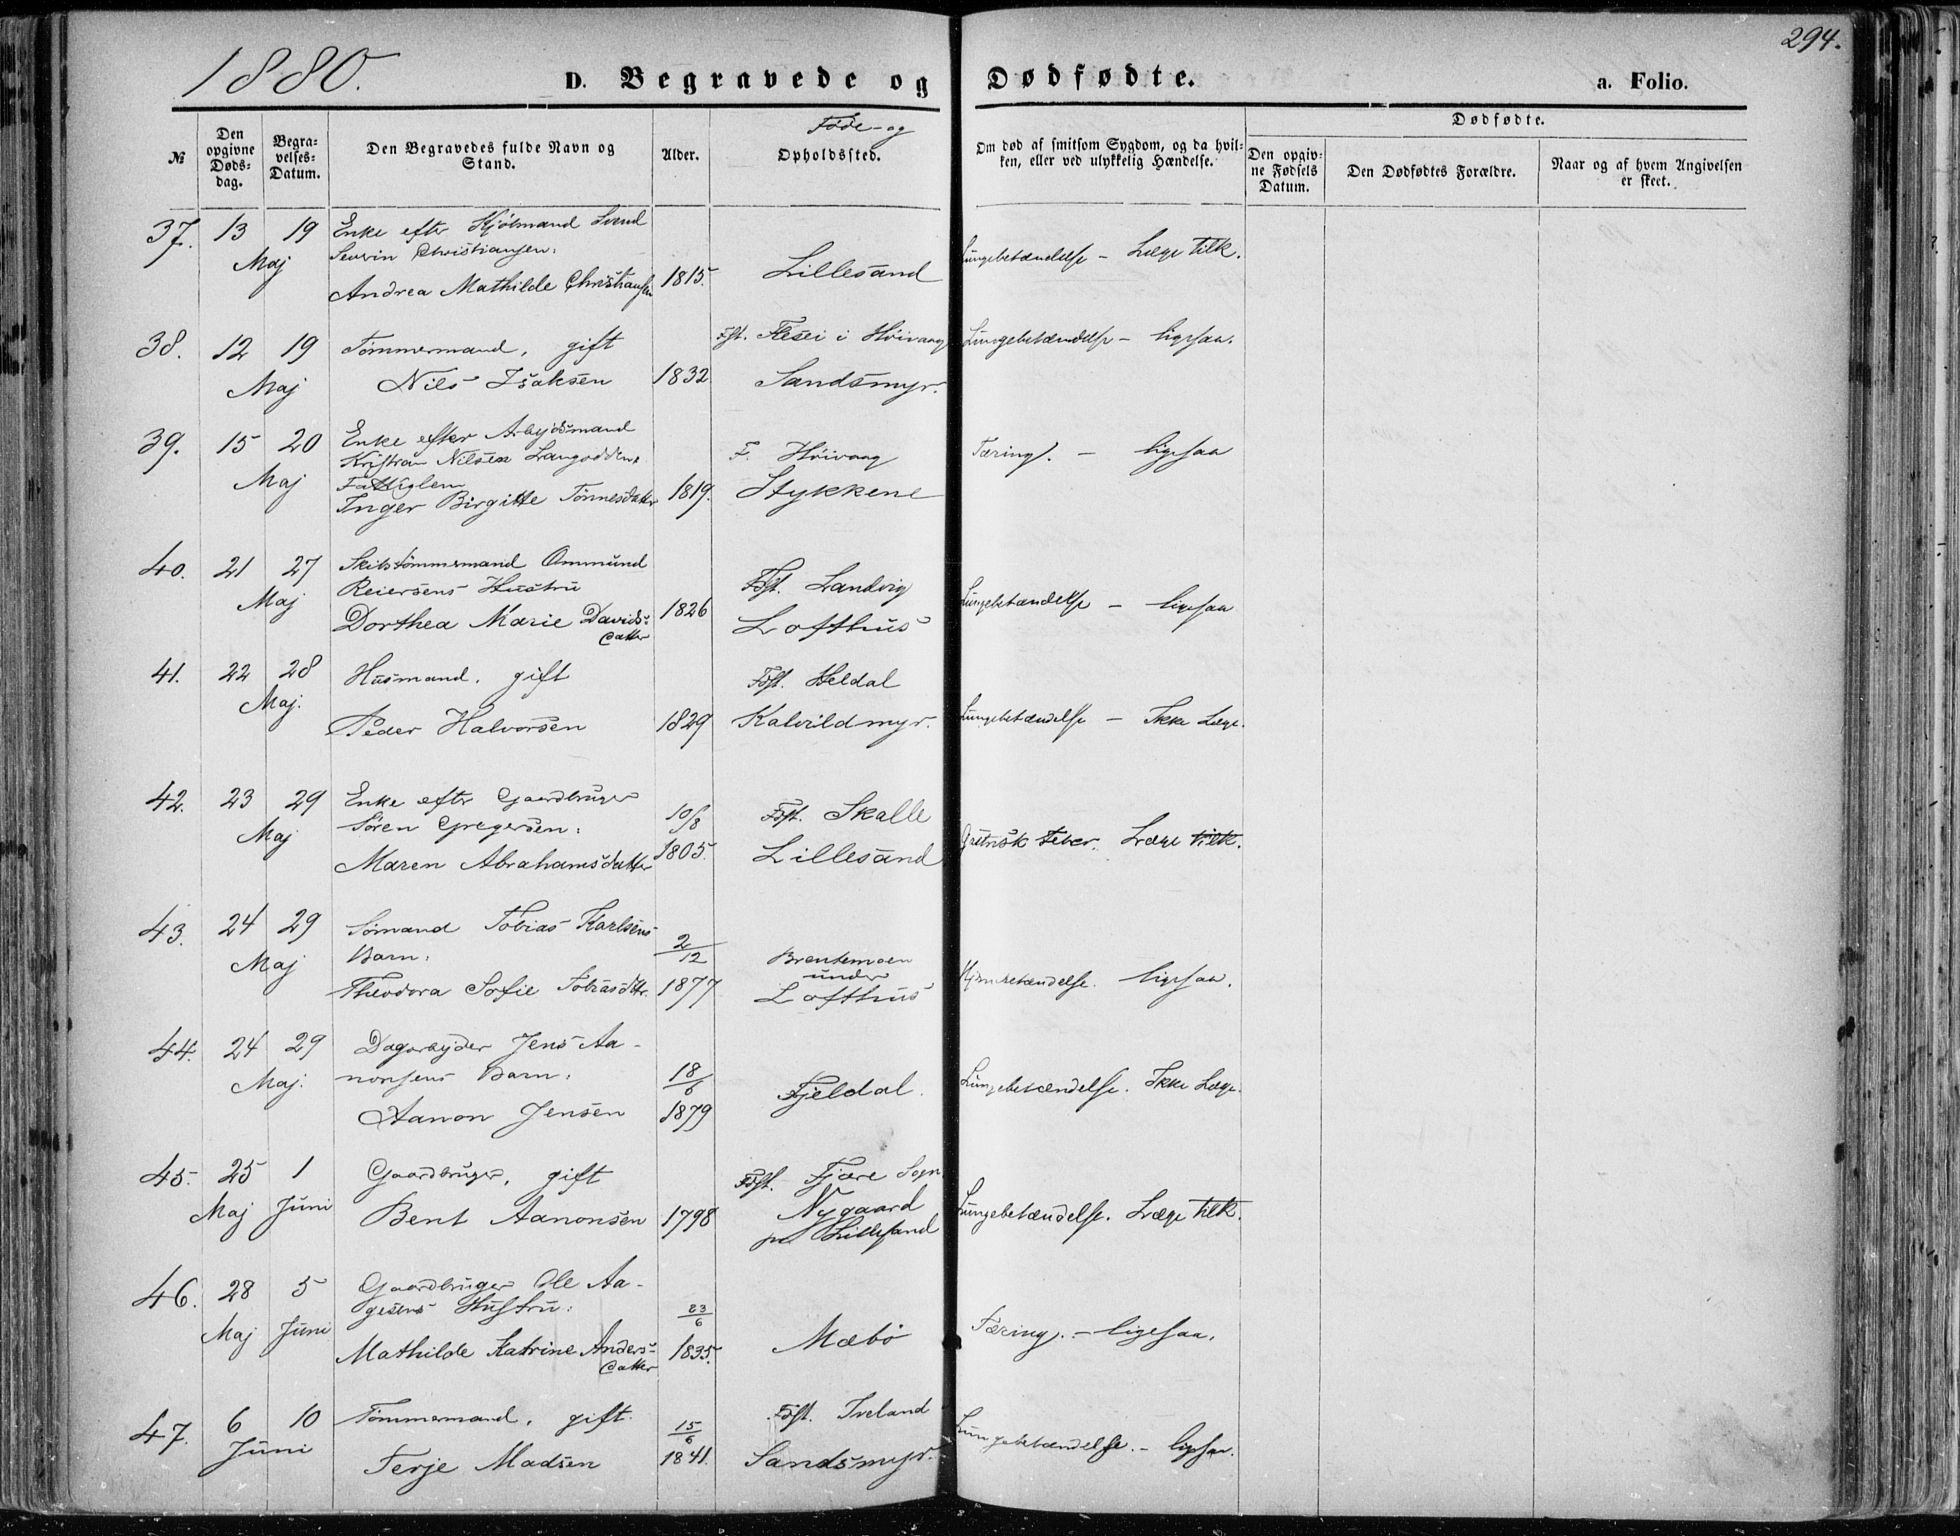 294.
1880.
D. Begravede og Dødfødte.
a. Folio.
№
Den opgivne Døds- dag.
Begra- velses- Datum.
Den Begravedes fulde Navn og Stand.
Alder.
Føde- og
Opholdssted.
Om død af smitsom Sygdom, og da hvil- ken, eller ved ulykkelig Hændelse.
Dødfødte.
Den opgiv- ne Fødsels Datum.
Den Dødfødtes Forældre.
Naar og af hvem Angivelsen er skeet.
37. 13 19 Enke efter Kjøbmand Svend
Maj Severin Christiansen:
Andrea Mathilde Christiansen 1815. Lillesand Lungebetændelse – Læge tilk.
38. 12 19 Tømmermand, gift Fst. i Høivaag Lungebetændelse – ligesaa.
Maj Nils Isaksen 1832 Sandsmyr.
39. 15 20 Enke efter Arbejdsmand
Maj Nilsen Langodden, F. Høivaag Tæring. – ligesaa
Fattiglem
Inger Birgitte Tønnesdatter 1819. Stykkene
40. 21 27 Skibstømmermand Ommund
Maj Reiersens Hustru Fst. Landvig
Dorthea Marie Davids- datter 1826 Lofthus Lungebetændelse – ligesaa
41. 22 28 Husmand, gift Fst. Heldal
Maj. Peder Halvorsen 1829 Kalvildmyr. Lungebetændelse – Ikke Læge.
42. 23 29 Enke efter Gaardbruger
Maj Søren Gregersen: 10/8 Fst. Skalle
Maren Abrahamsdatter 1805. Lillesand Gastrisk Feber. Læge tilk.
43. 24 29 Sømand Tobias Karlsens
Maj Barn: 2/12 Brentemoen
under
Theodora Sofie Tobiasdtr. 1877 Lofthus Hjernebetændelse. ligesaa.
44. 24 29 Dagarbejder Jens Aa-
Maj. nonsens Barn: 18/6
Aanon Jensen 1879 Fjeldal. Lungebetændelse. Ikke Læge.
45. 25 1 Gaardbruger, gift Fst. Fjære Sogn
Maj Juni Bent Aanonsen 1798 Nygaard Lungebetændelse. Læge tilk.
pr Lillesand
46. 28 5 Gaardbruger Ole Aa-
Maj Juni gesens Hustru: 23/6
Mathilde Katrine Anders- datter 1835. Mæbø Tæring. – ligesaa.
47. 6 10 Tømmermand, gift. 15/6 Fst. Iveland
Juni Terje Madsen 1841. Sandsmyr. Lungebetændelse. – ligesaa.